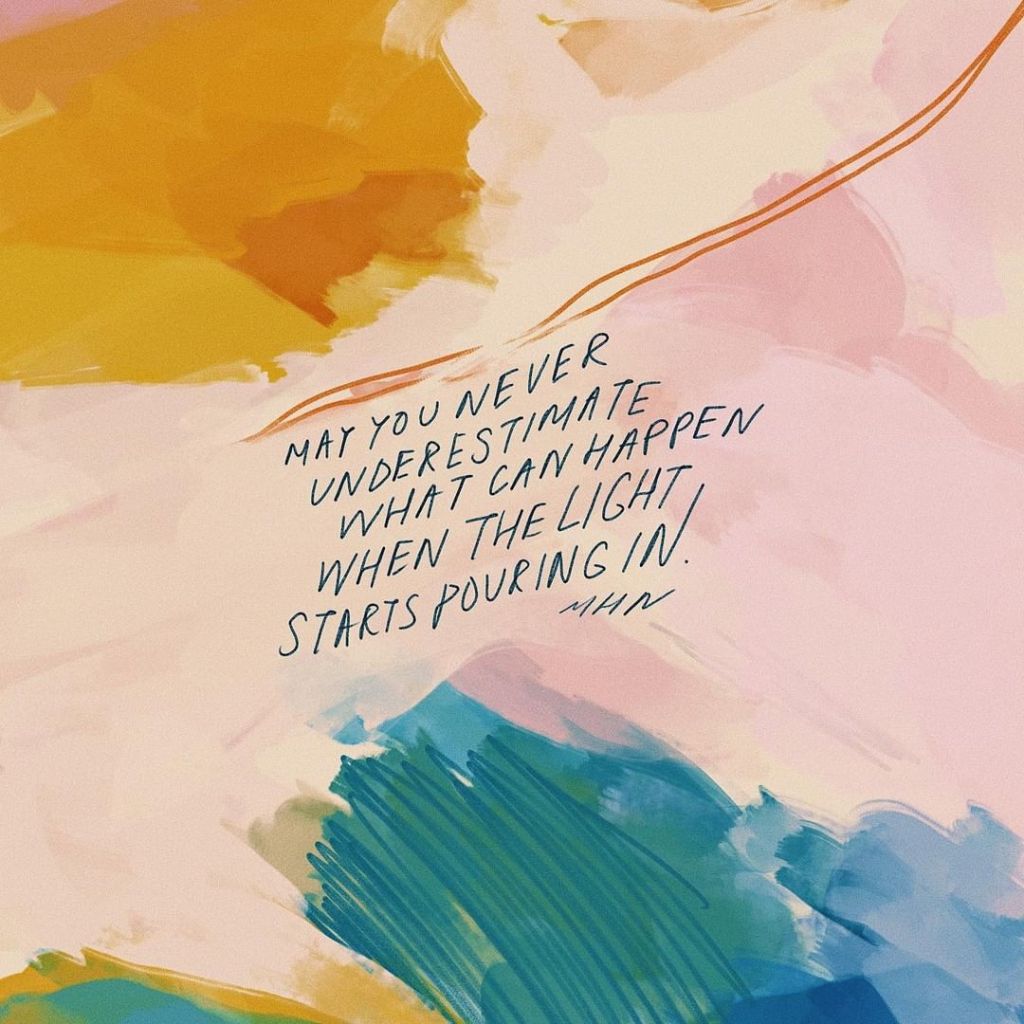 MAY YOU NEVER
UNDERESTIMATE
WHAT CAN HAPPEN
WHEN THE LIGHT
STARTS POURING IN!
MHN